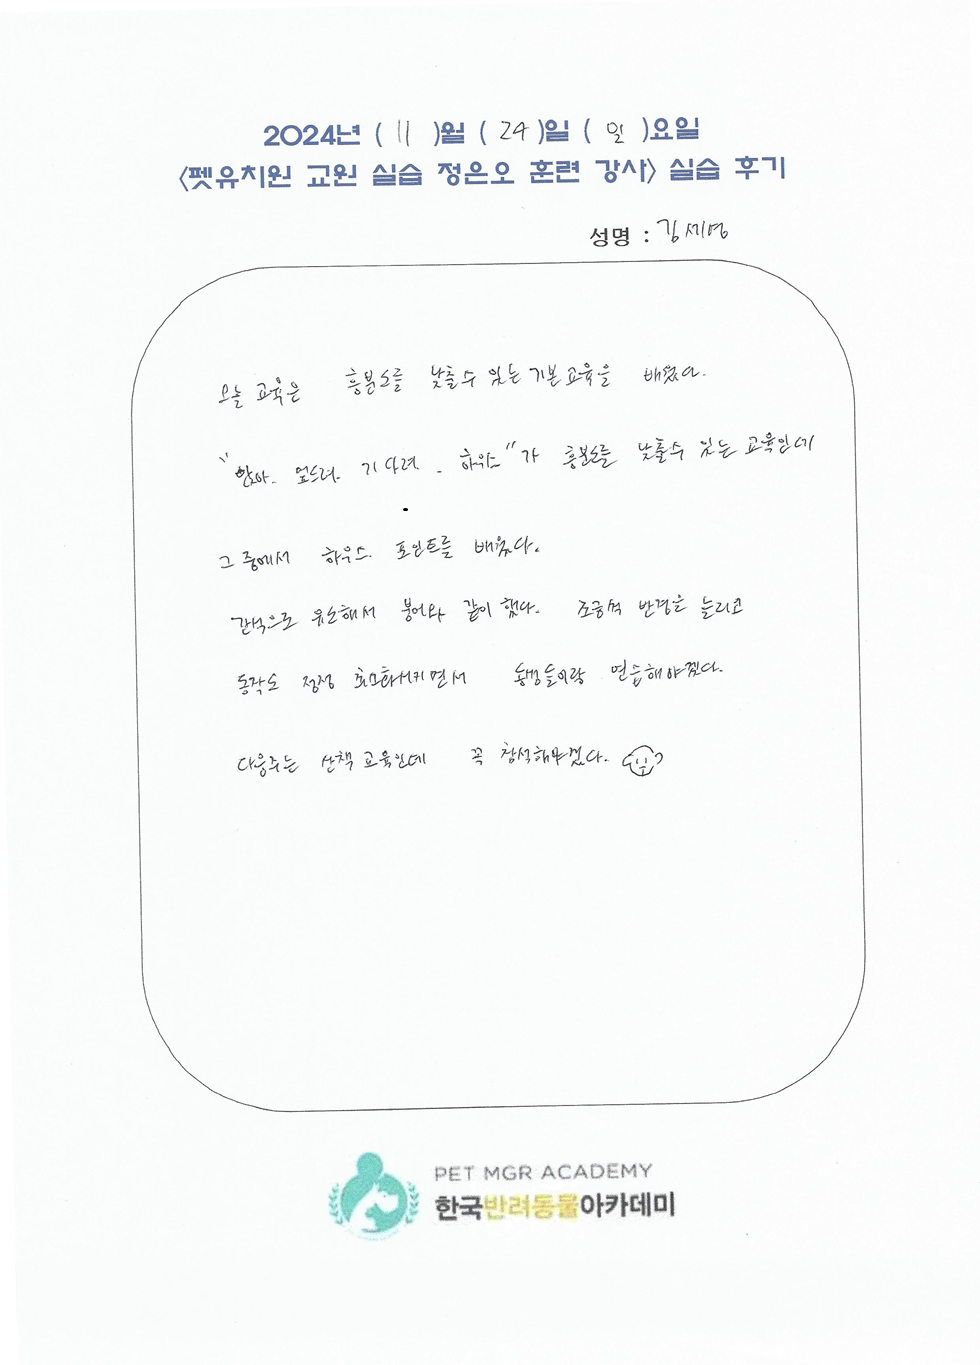 2024년 ( 11 )월 ( 24 )일 ( 일 )요일
<펫유치원 교원 실습 정은오 훈련 강사> 실습 후기
성명 : 김세영
오늘 교육은 흥분도를 낮출수 있는 기본교육을 배웠다.
"앉아. 엎드려. 기다려. 하우스"가 흥분도를 낮출수 있는 교육인데
그 중에서 하우스 포인트를 배웠다.
간식으로 유도해서 붕어와 같이 했다. 조금씩 반경을 늘리고
동작도 점점 최소화시키면서 동생들이랑 연습해야겠다.
다음주는 산책교육인데 꼭 참석해야겠다.
PET MGR ACADEMY
한국반려동물아카데미